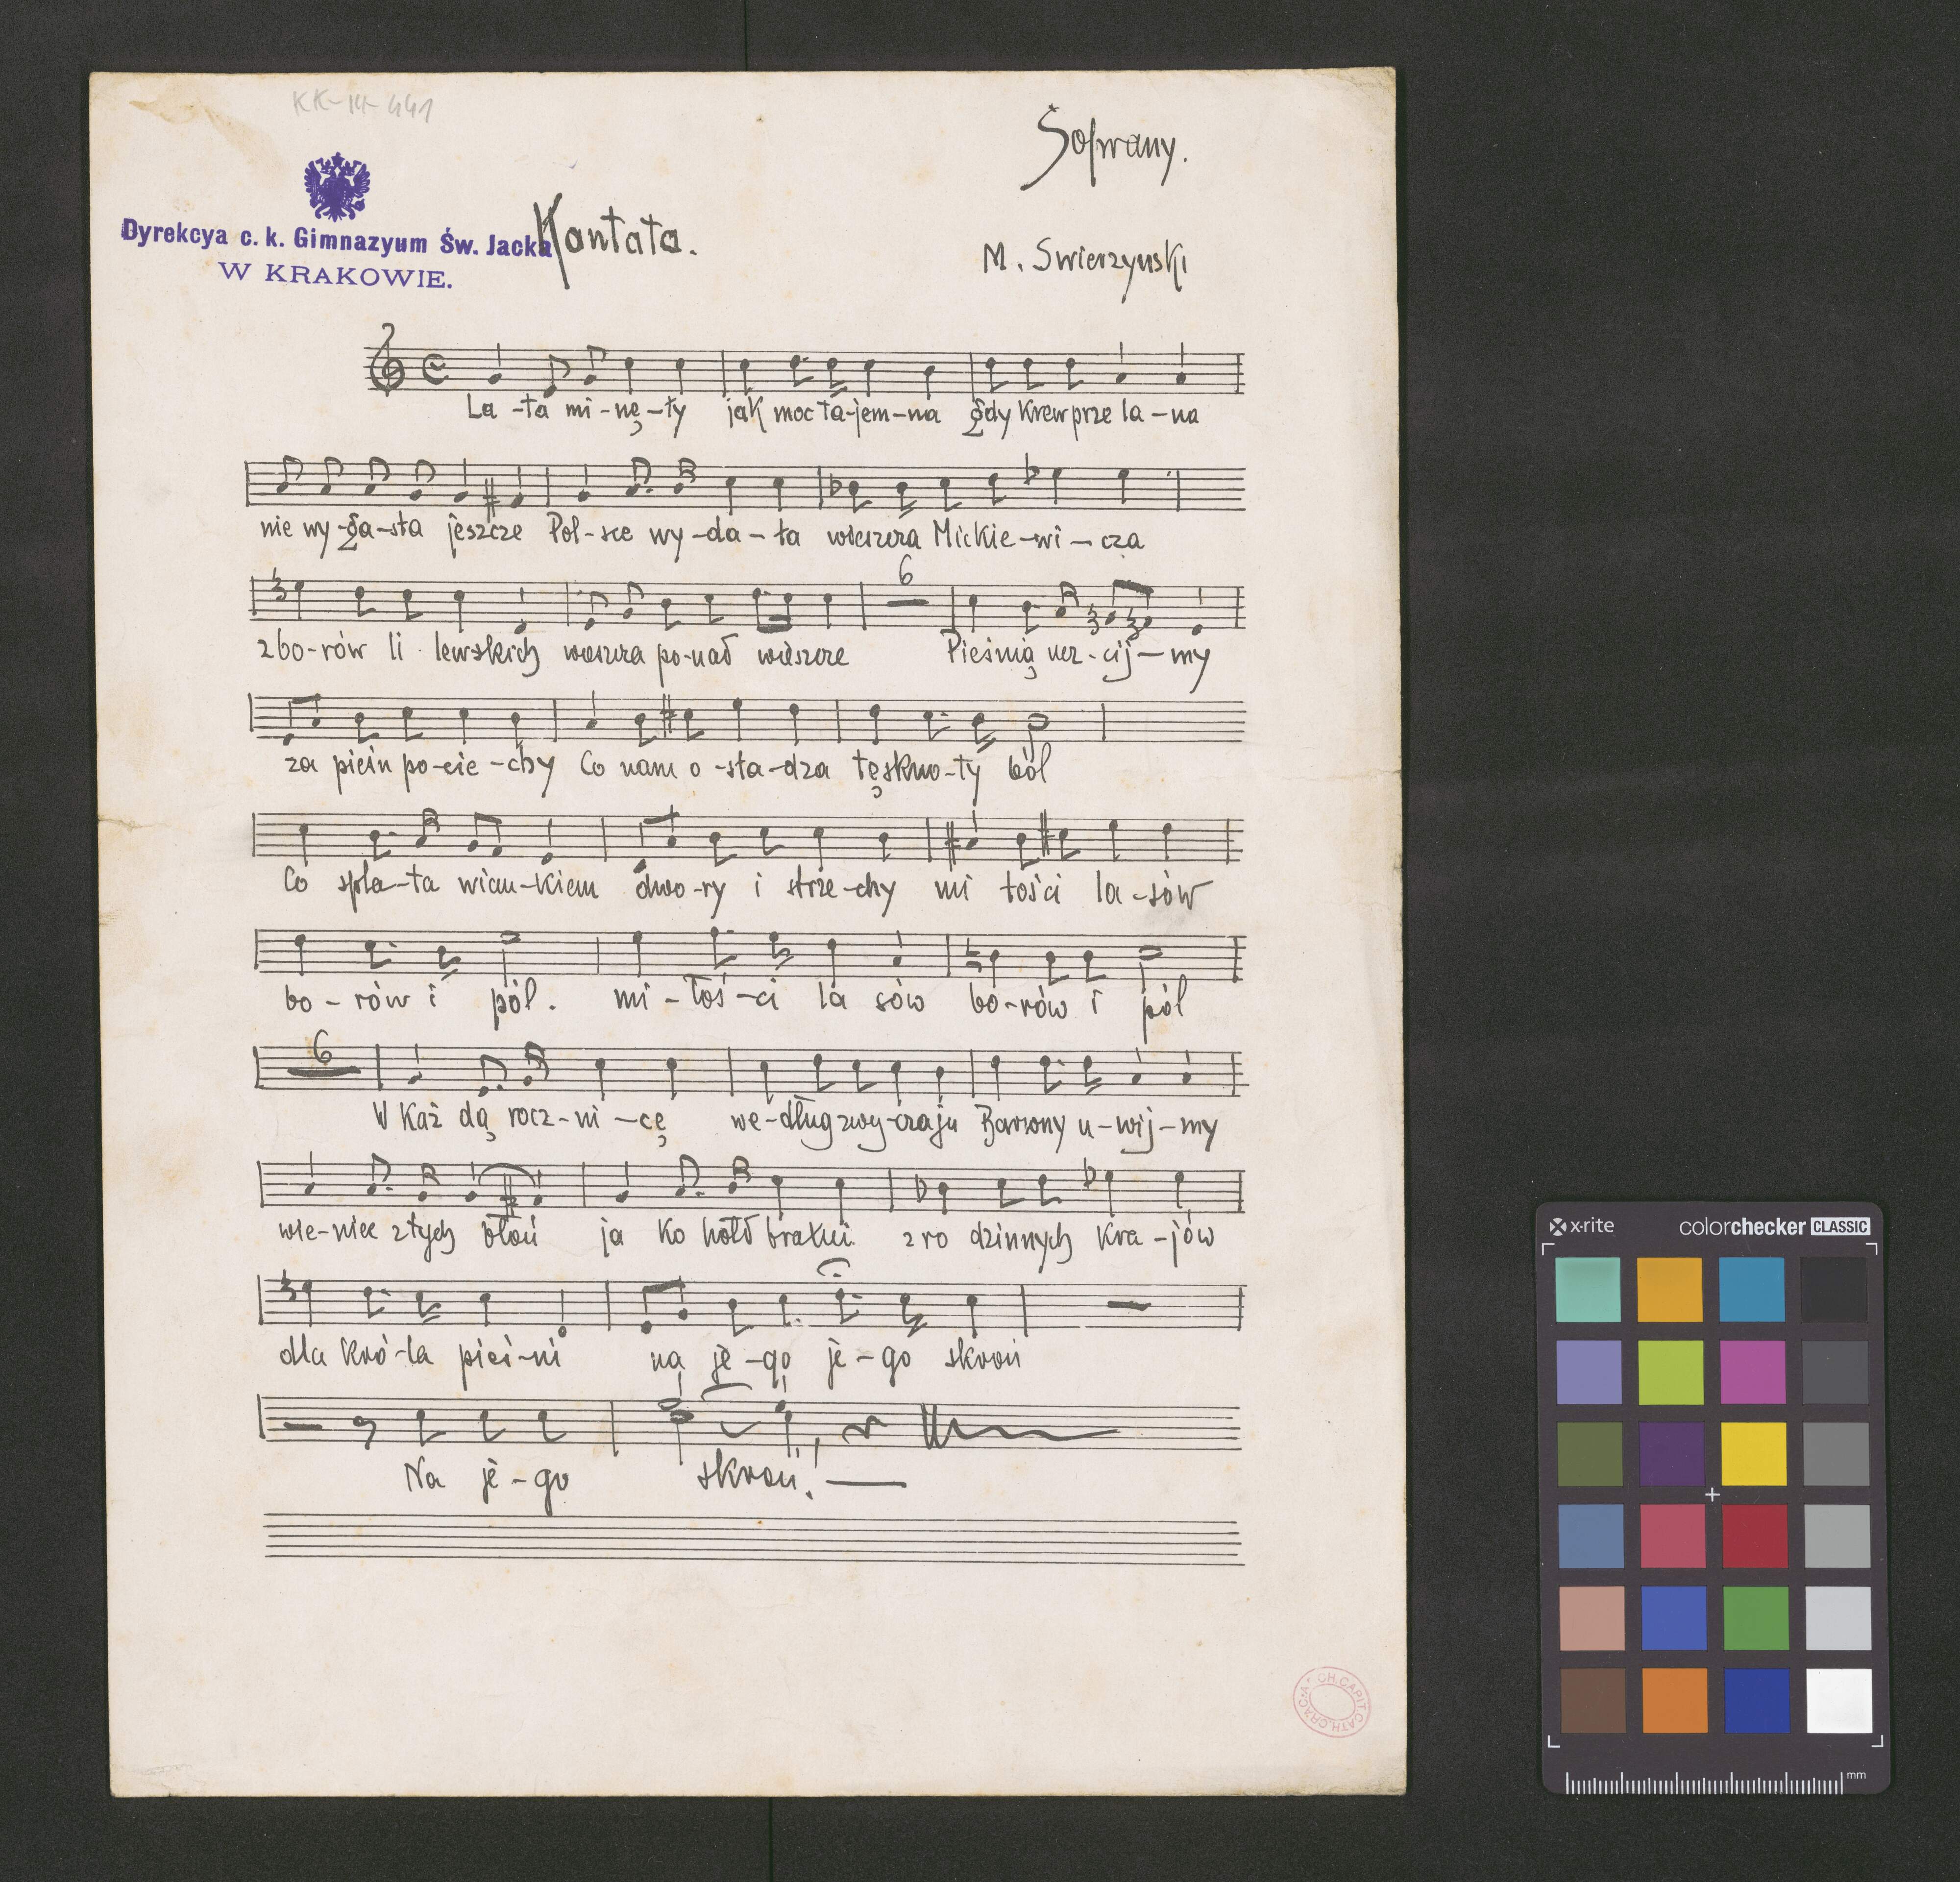 KK-IV-441
Soprany.
Dyrekcya c. k. Gimnazyum Św. Jacka
W KRAKOWIE.
Kantata.
M. Swierzynski
La-ta mi-nę-ły jak moc ta-jem-na gdy krew prze la-na
nie wy-ga-sła jeszcze Pol-sce wy-da-ła wieszcza Mickie-wi-cza
6
z bo-rów li lewskich wieszcza po-nad wieszcze Pieśnią ucz-cij-my
za pieśń po-cie-chy Co nam o-sła-dza tęskno-ty ból
Co spla-ta wian-kiem dwo-ry i strze-chy mi łości la-sów
bo-rów i pól. mi-łoś-ci la sów bo-rów i pól
6
W Każ dą rocz-ni-cę we-dług zwy-czaju Barwny u-wij-my
wie-niec z tych błoń ja ko hołd bratni z ro dzinnych kra-jów
dla kró-la pieś-ni na je-go je-go skroń
Na je-go skroń!
x-rite
colorchecker CLASSIC
mm